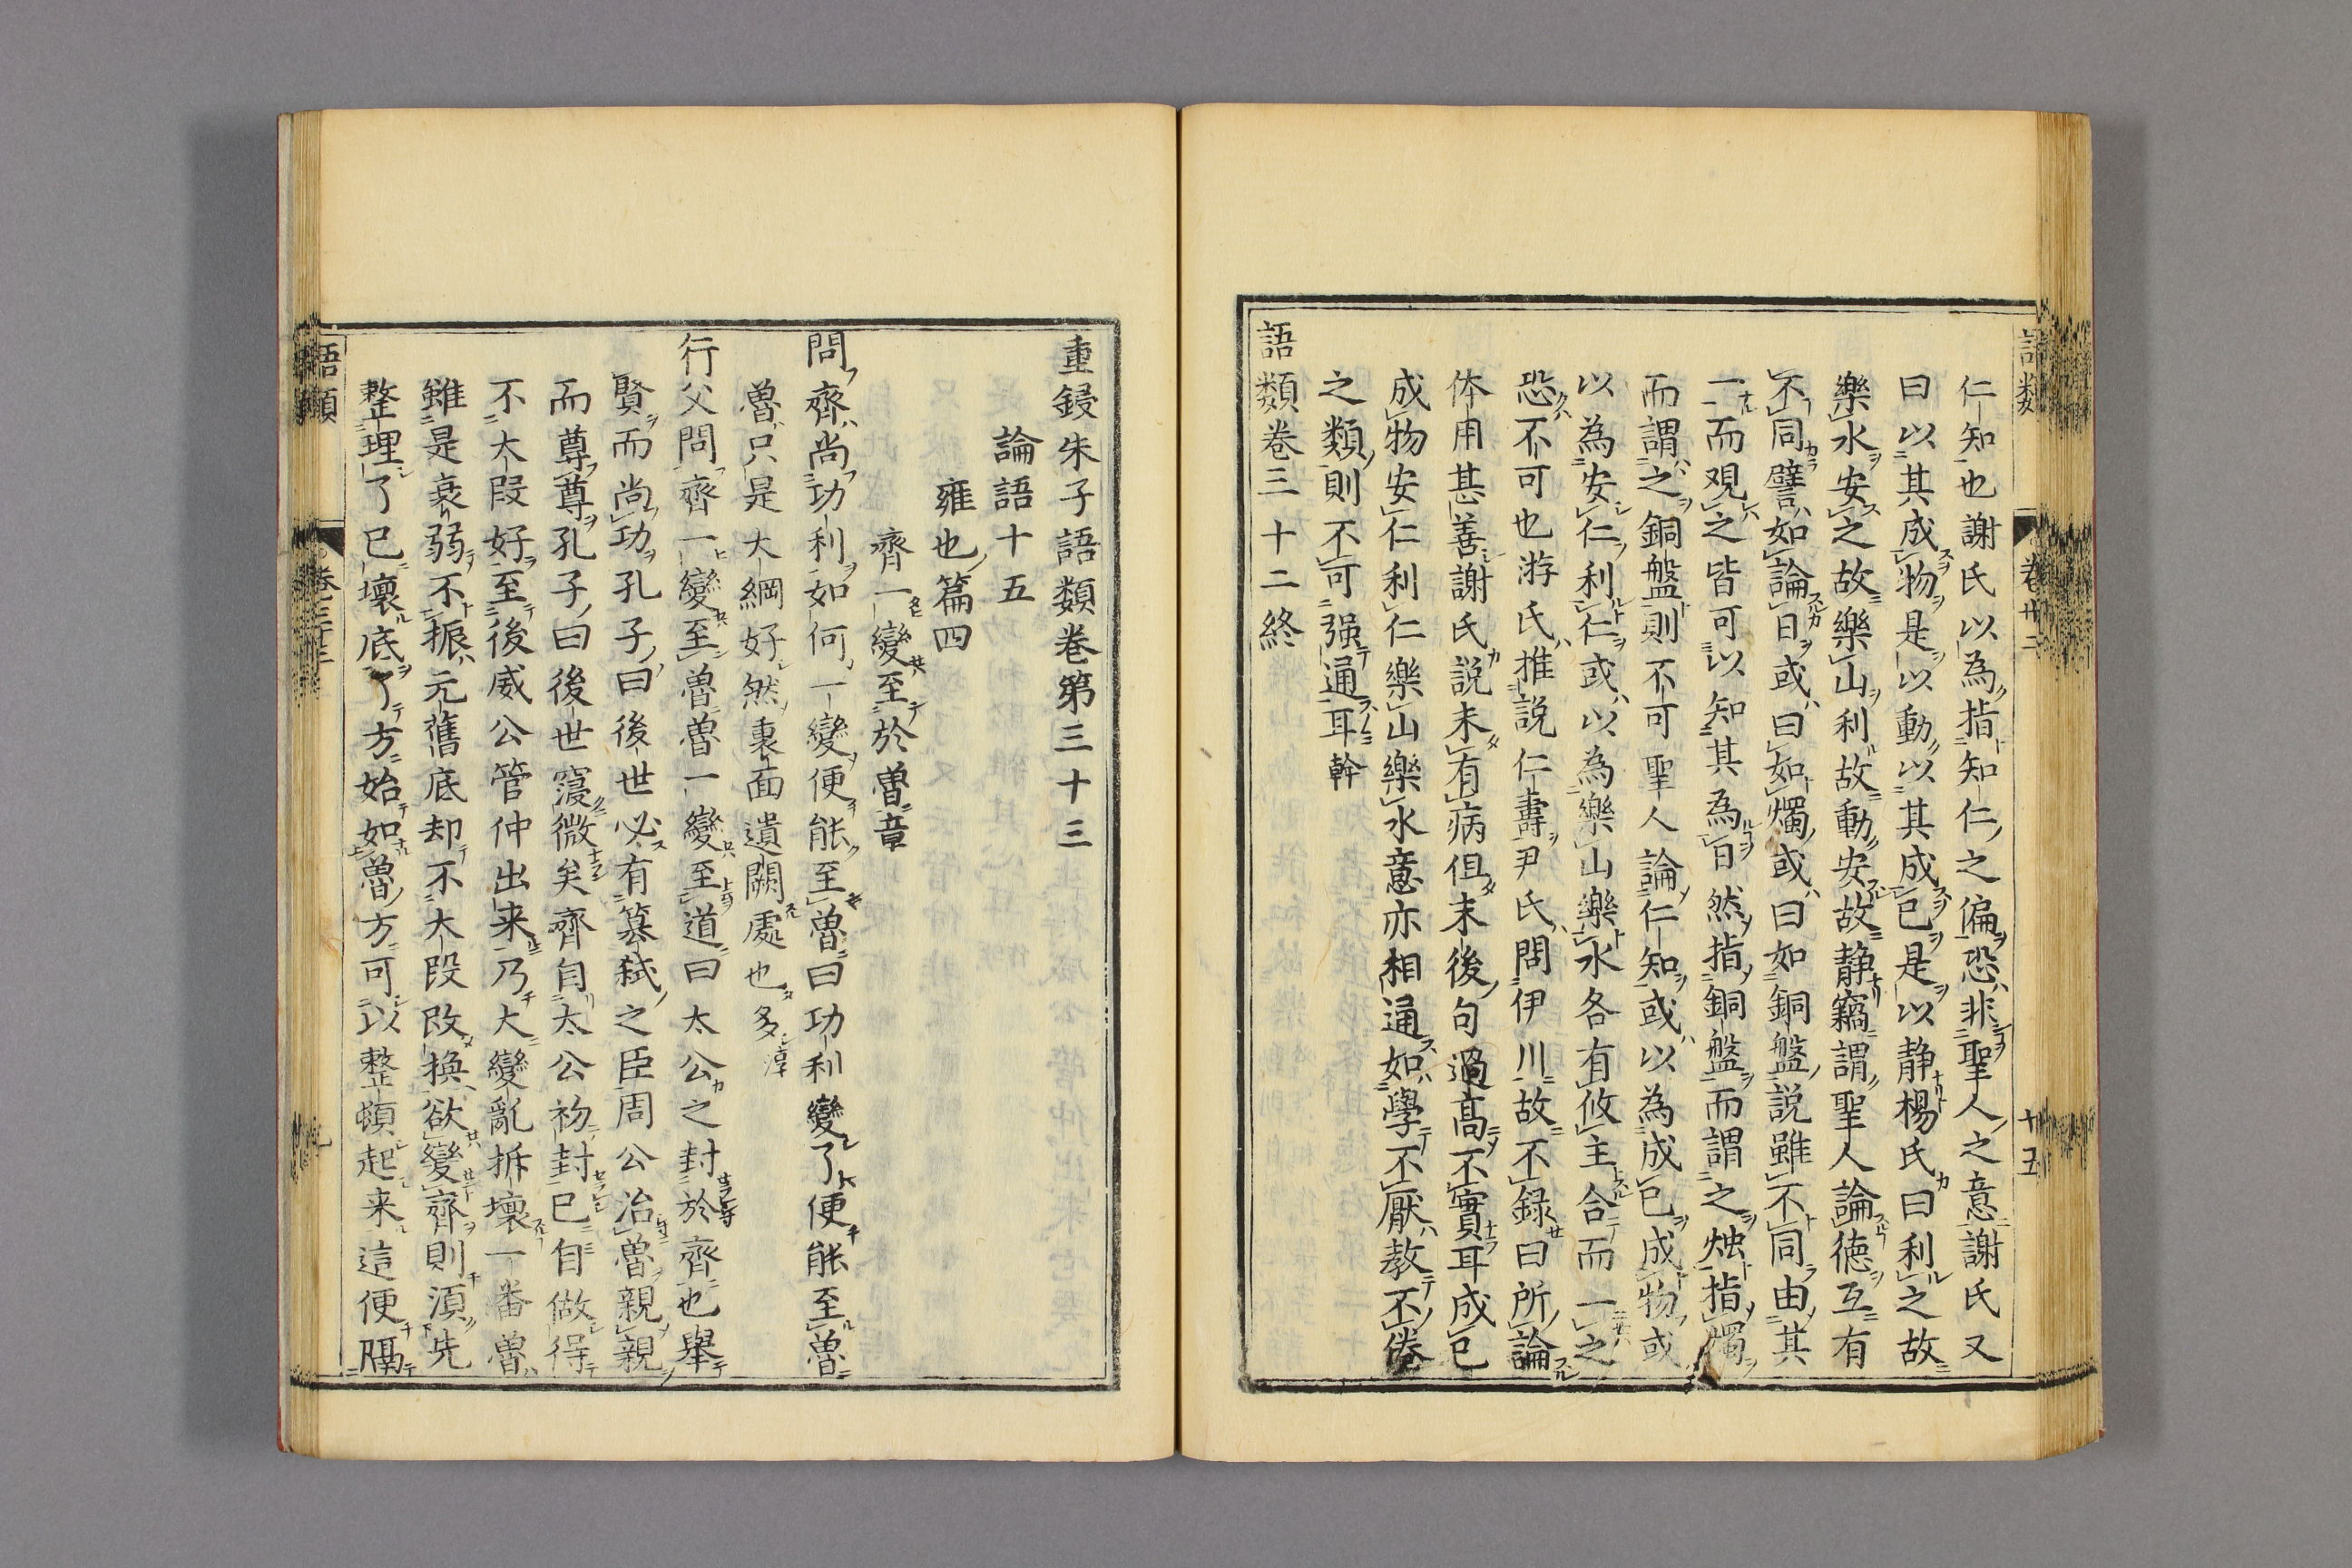 語類 卷卅二 十五
仁知也謝氏以為指知仁之偏恐非聖人之意謝氏又
曰以其成物是以動以其成已是以静楊氏曰利之故
樂水安之故樂山利故動安故静竊謂聖人論徳互有
不同譬如論日或曰如燭或曰如銅盤説雖不同由其
一而観之皆可以知其為日然指銅盤而謂之烛指燭
而謂之銅盤則不可聖人論仁知或以為成已成物或
以為安仁利仁或以為樂山樂水各有攸主合而一之
恐不可也游氏推説仁壽尹氏問伊川故不録曰所論
体用甚善謝氏説未有病但末後句過高不實耳成已
成物安仁利仁樂山樂水意亦相通如學不厭教不倦
之類則不可强通耳幹
語類卷三十二終
重鋟朱子語類卷第三十三
論語十五
雍也篇四
齊一變至於魯章
問齊尚功利如何一變便能至魯曰功利變了便能至魯
魯只是大綱好然裏面遺闕處也多淳
行父問齊一變至魯魯一變至道曰太公之封於齊也舉
賢而尚功孔子曰後世必有簒弑之臣周公治魯親親
而尊尊孔子曰後世寖微矣齊自太公初封已自做得
不大段好至後威公管仲出来乃大變亂拆壞一番魯
雖是衰弱不振元舊底却不大段改換欲變齊則湏先
整理了已壞底了方始如魯方可以整頓起来這便隔
語類 卷三十三